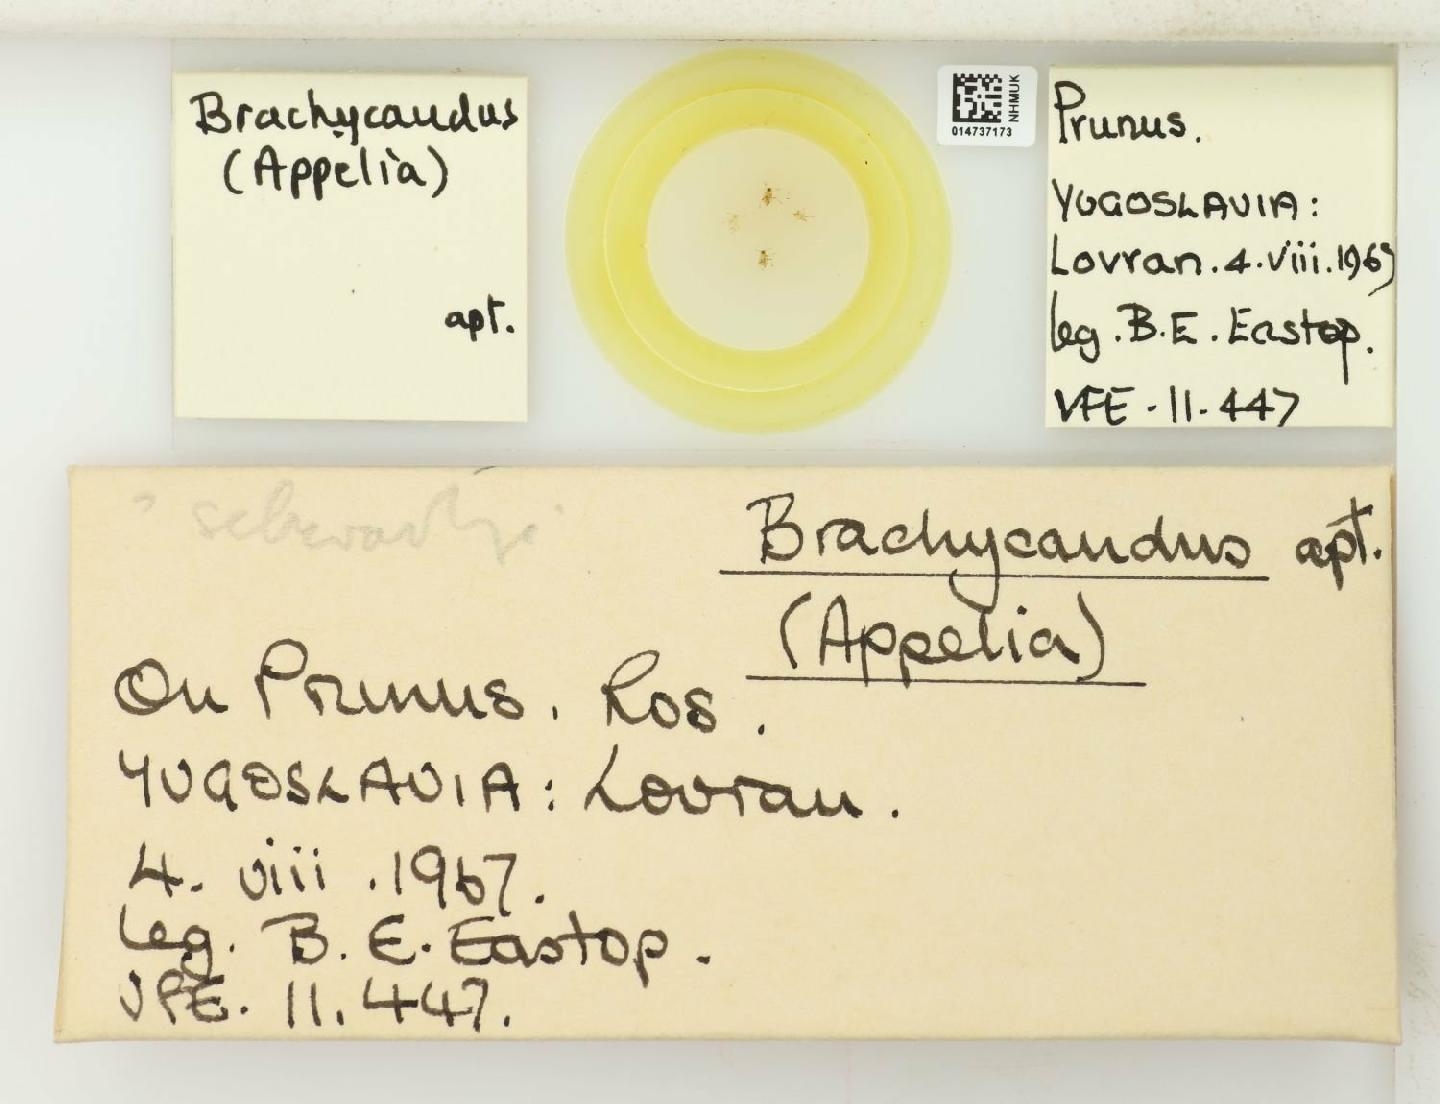 Brachycaudus
(Appelia)
apt.
NHMUK
014737173
Prunus.
YUGOSLAVIA:
Lovran. 4. viii. 1967
leg. B. E. Eastop.
VFE. 11. 447
Brachycaudus apt.
(Appelia)
On Prunus. Ros.
YUGOSLAVIA: Lovran.
4. viii. 1967.
leg. B. E. Eastop.
VFE. 11. 447.